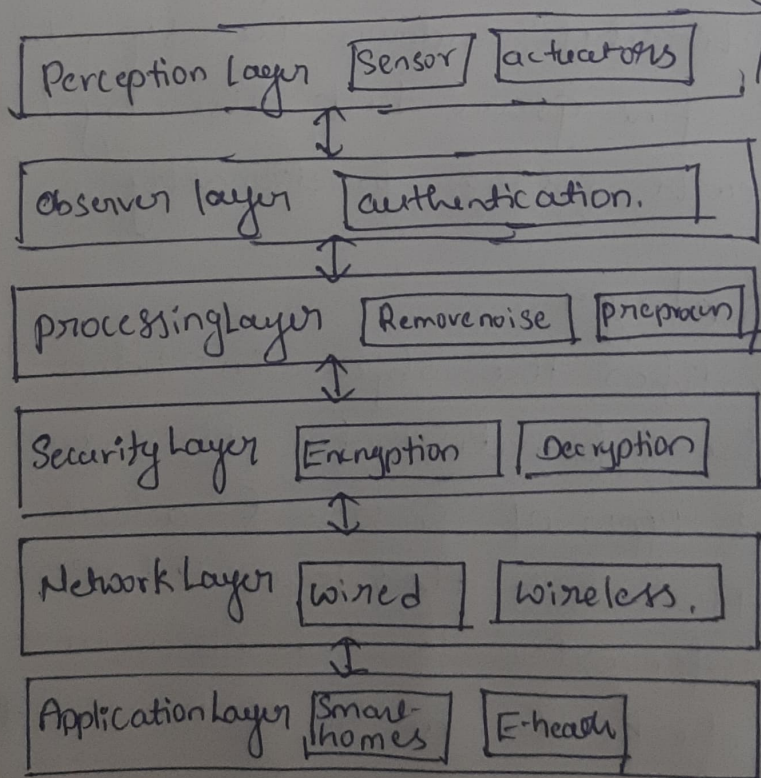 Perception Layer Sensor actuators
Observer layer authentication.
Processing Layer Remove noise
Security Layer Encryption Decryption
Network Layer Wired Wireless.
Application Layer Smart- E-heath
homes